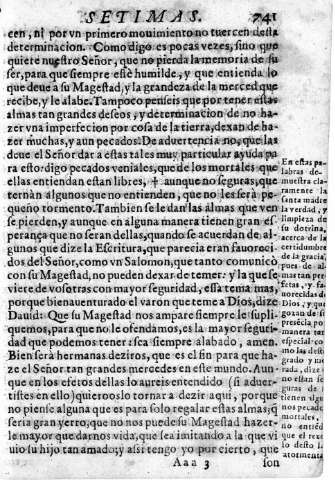 SETIMAS. 741
cen, ni por vn primero mouimiento no tuercen desta
determinacion. Como digo es pocas vezes, sino que
quiere nuestro Señor, que no pierda la memoria de su
ser, para que siempre esté humilde, y que entienda lo
que deue a su Magestad, y la grandeza de la merced que
recibe, y le alabe. Tampoco penseis que por tener estas
almas tan grandes deseos, y determinacion de no ha-
zer vna imperfecion por cosa de la tierra, dexan de ha-
zer muchas, y aun pecados. De aduertencia no, que las
deue el Señor dar a estas tales muy particular ayuda pa
ra esto: digo pecados veniales, que de los mortales que
ellas entiendan estan libres, † aunque no seguras, que
ternàn algunos que no entienden, que no les serà pe-
queño tormento. Tambien se le dan las almas que ven
se pierden, y aunque en alguna manera tienen gran es-
perança que no seran dellas, quando se acuerdan de al-
gunos que dize la Escritura, que parecia eran fauoreci-
dos del Señor, como vn Salomon, que tanto comunicò
con su Magestad, no pueden dexar de temer: y la que se
viere de vosotras con mayor seguridad, essa tema mas,
porque bienauenturado el varon que teme a Dios, dize
Dauid: Que su Magestad nos ampare siempre le supli-
quemos, para que no le ofendamos, es la mayor seguri-
dad que podemos tener: sea siempre alabado, amen.
Bien serà hermanas deziros, que es el fin para que ha-
ze el Señor tan grandes mercedes en este mundo. Aun-
que en los efetos dellas lo aureis entendido (si aduer-
tistes en ello) quieroos lo tornar a dezir aqui, porque
no piense alguna que es para solo regalar estas almas; q̃
seria gran yerro, que no nos puede su Magestad hazer-
le mayor que darnos vida, que sea imitando a la que vi
uio su hijo tan amado; y assi tengo yo por cierto, que
Aaa 3 son
En estas pa
labras de-
muestra cla
ramente la
santa madre
la verdad, y
limpieza de
su dotrina,
acerca de la
certidumbre
de la gracia,
pues de al-
mas tan per
fetas, y fa-
uorecidas de
Dios, y que
gozan de su
presécia por
manera tan
especial co-
mo las deste
grado y mo
rada, dize
no estan se
guras de si
tienen algu
nos pecados
mortales,
no entiéde
que el rece
lo desto la
atormenta